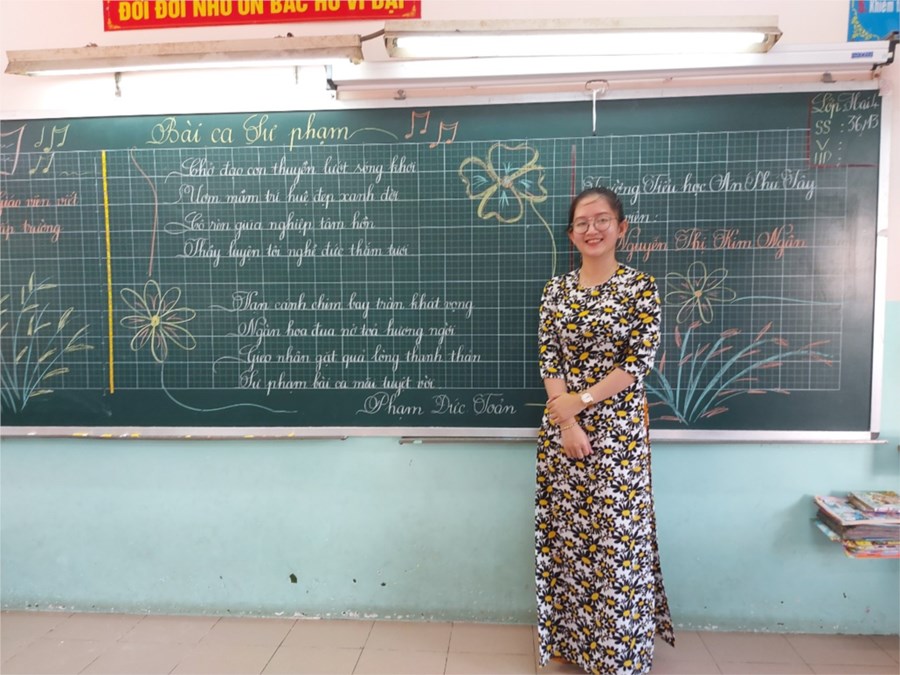 ĐỜI ĐỜI NHỚ ƠN BÁC HỒ VĨ ĐẠI
Bài ca Sư phạm
Chở đạo con thuyền lướt sóng khơi
Ươm mầm trí huệ đẹp xanh đời
Cô rèn giữa nghiệp tâm hồn
Thầy luyện tôi nghề đức thắm tươi
Tán cành chim bay tràn khát vọng
Ngàn hoa đua nở toả hương ngời
Gieo nhân gặt quả lòng thanh thản
Sư phạm bài ca mãi tuyệt vời
Phạm Đức Toản
viên viết
cấp trường
Trường Tiểu học An Phú Tây
viên :
Nguyễn Thị Kim Ngân
Lớp Hai/4
SS : 36/13
V :
HD :
Khiêm